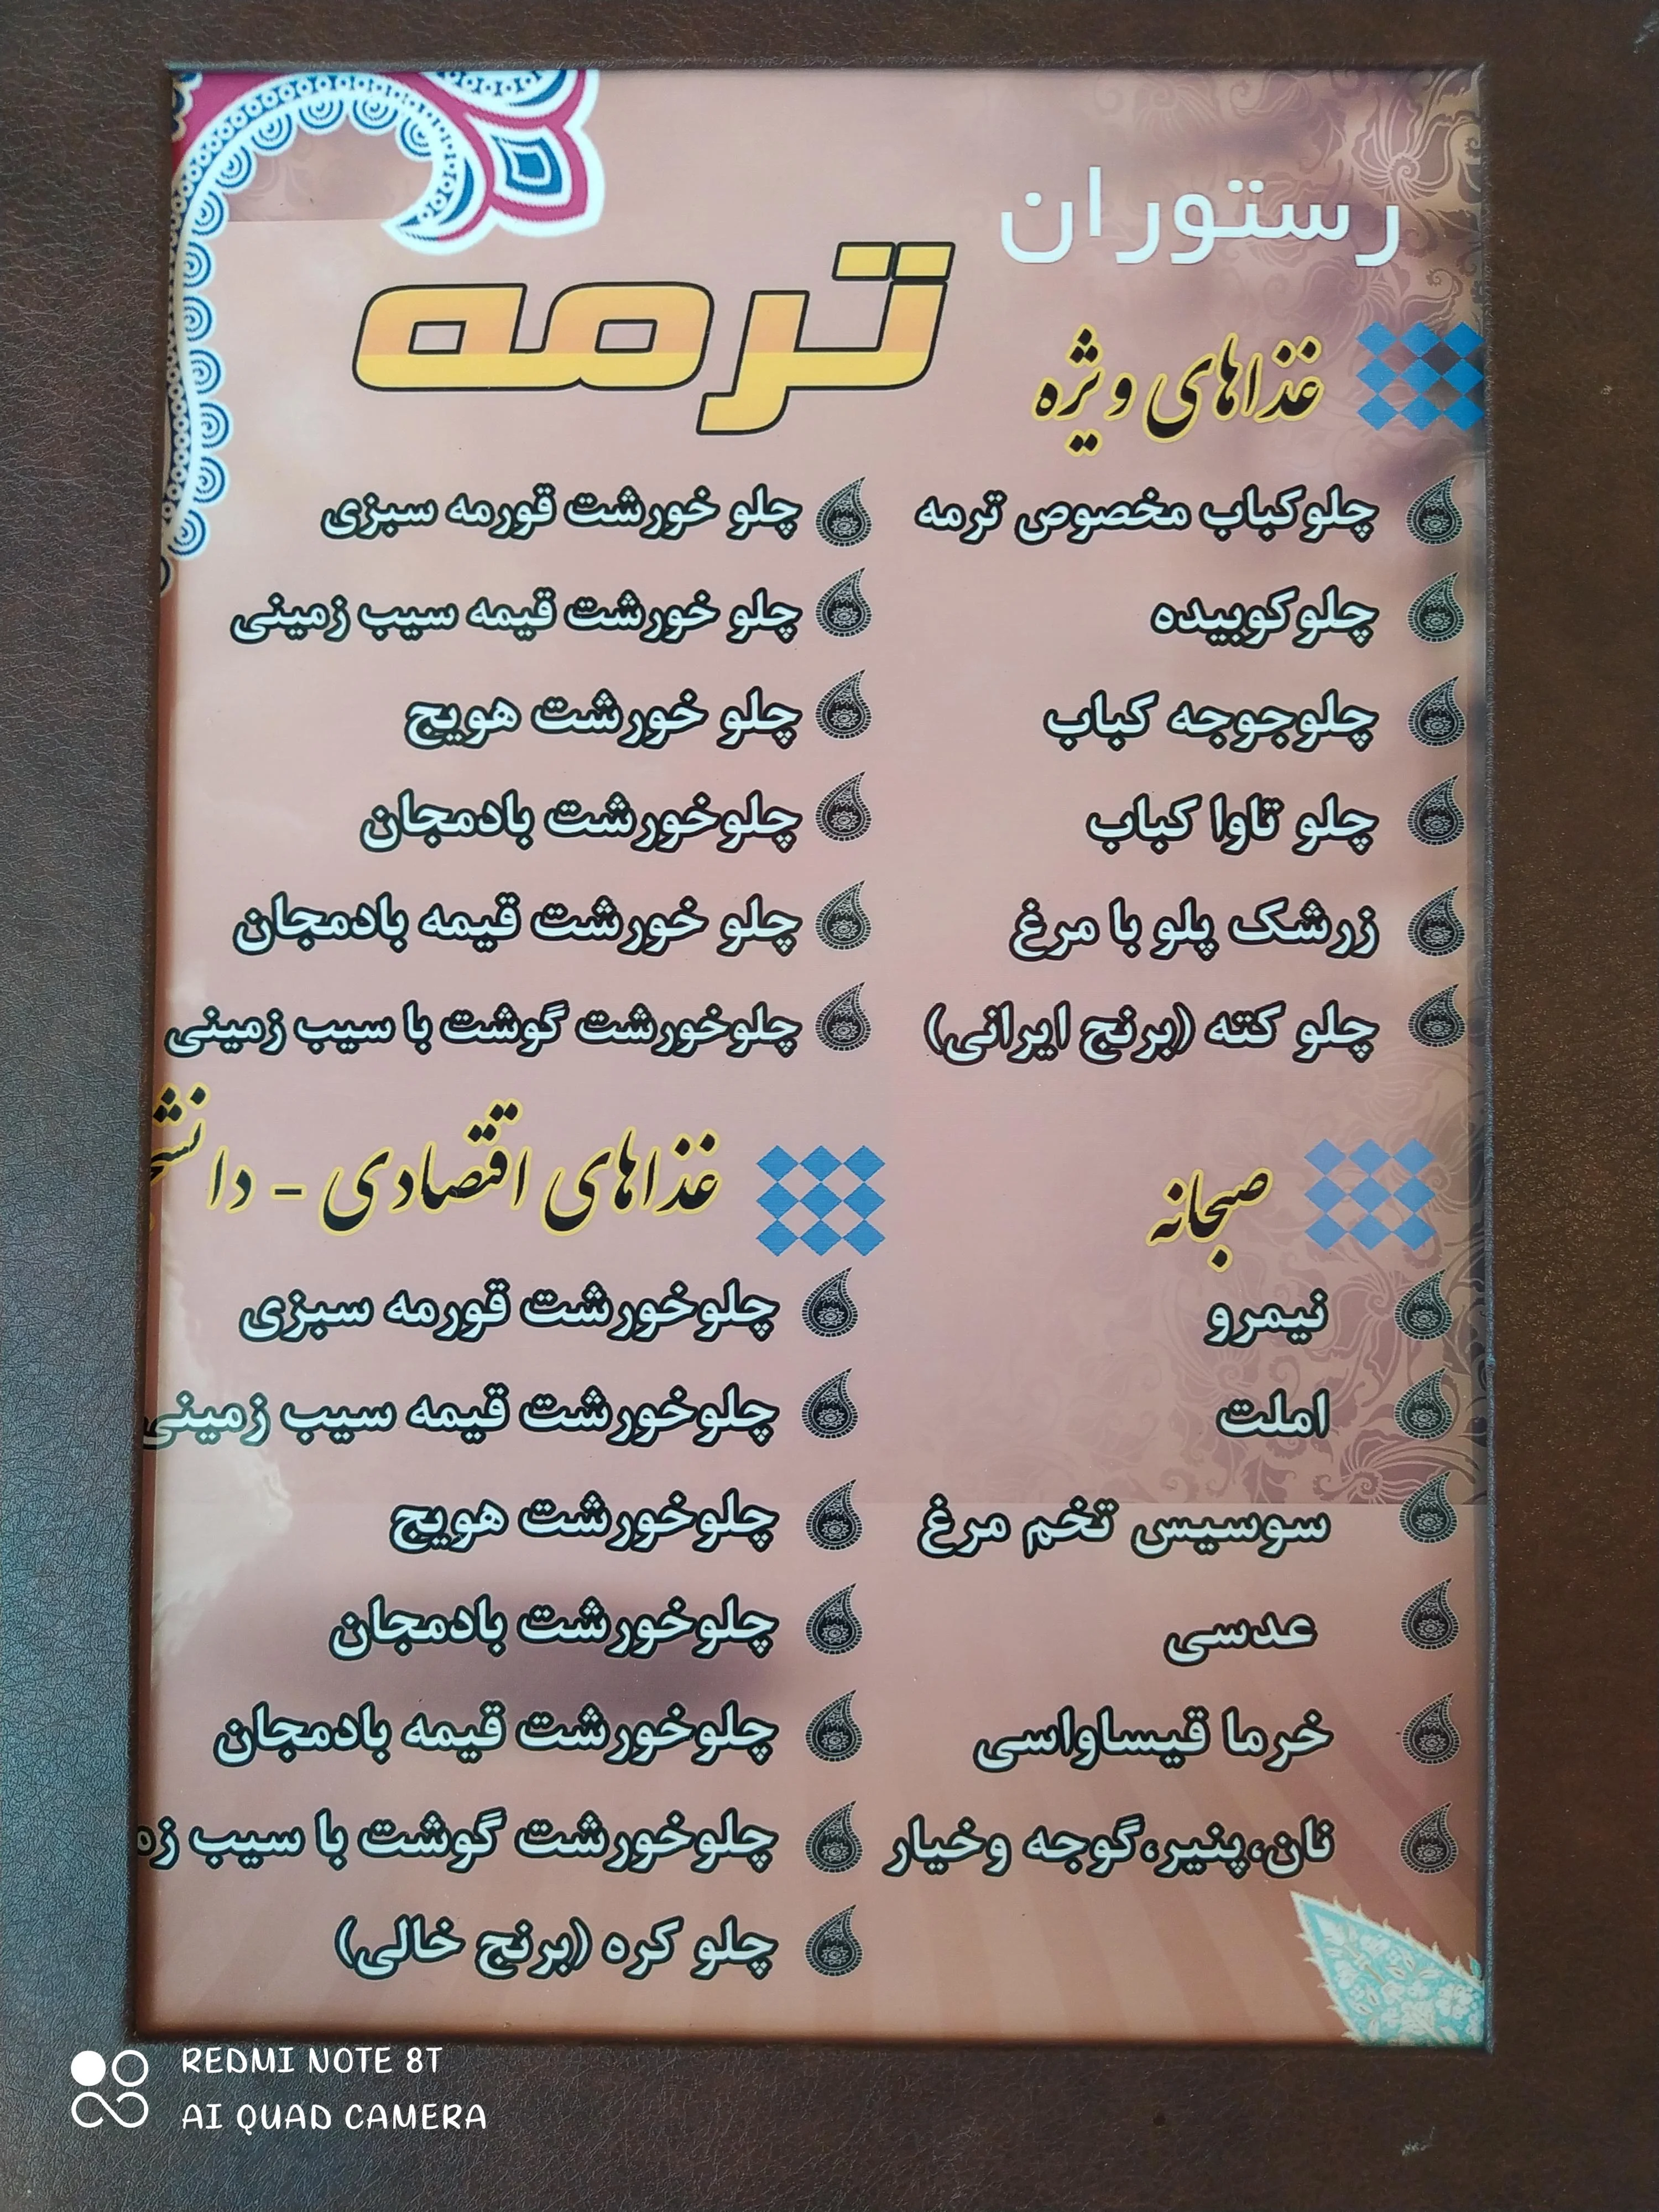 رستوران
ترمه
غذاهای ویژه
چلوکباب مخصوص ترمه
چلوکوبیده
چلوجوجه کباب
چلو تاوا کباب
زرشک پلو با مرغ
چلو کته (برنج ایرانی)
چلو خورشت قورمه سبزی
چلو خورشت قیمه سیب زمینی
چلو خورشت هویج
چلوخورشت بادمجان
چلو خورشت قیمه بادمجان
چلوخورشت گوشت با سیب زمینی
صبحانه
نیمرو
املت
سوسیس تخم مرغ
عدسی
خرما قیساواسی
نان،پنیر،گوجه وخیار
غذاهای اقتصادی -
چلوخورشت قورمه سبزی
چلوخورشت قیمه سیب زمینی
چلوخورشت هویج
چلوخورشت بادمجان
چلوخورشت قیمه بادمجان
چلوخورشت گوشت با سیب
چلو کره (برنج خالی)
REDMI NOTE 8T
AI QUAD CAMERA